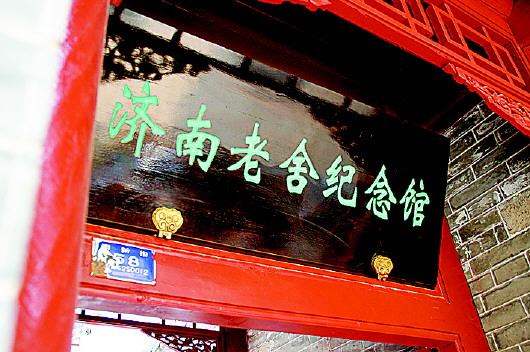 济南老舍纪念馆
58